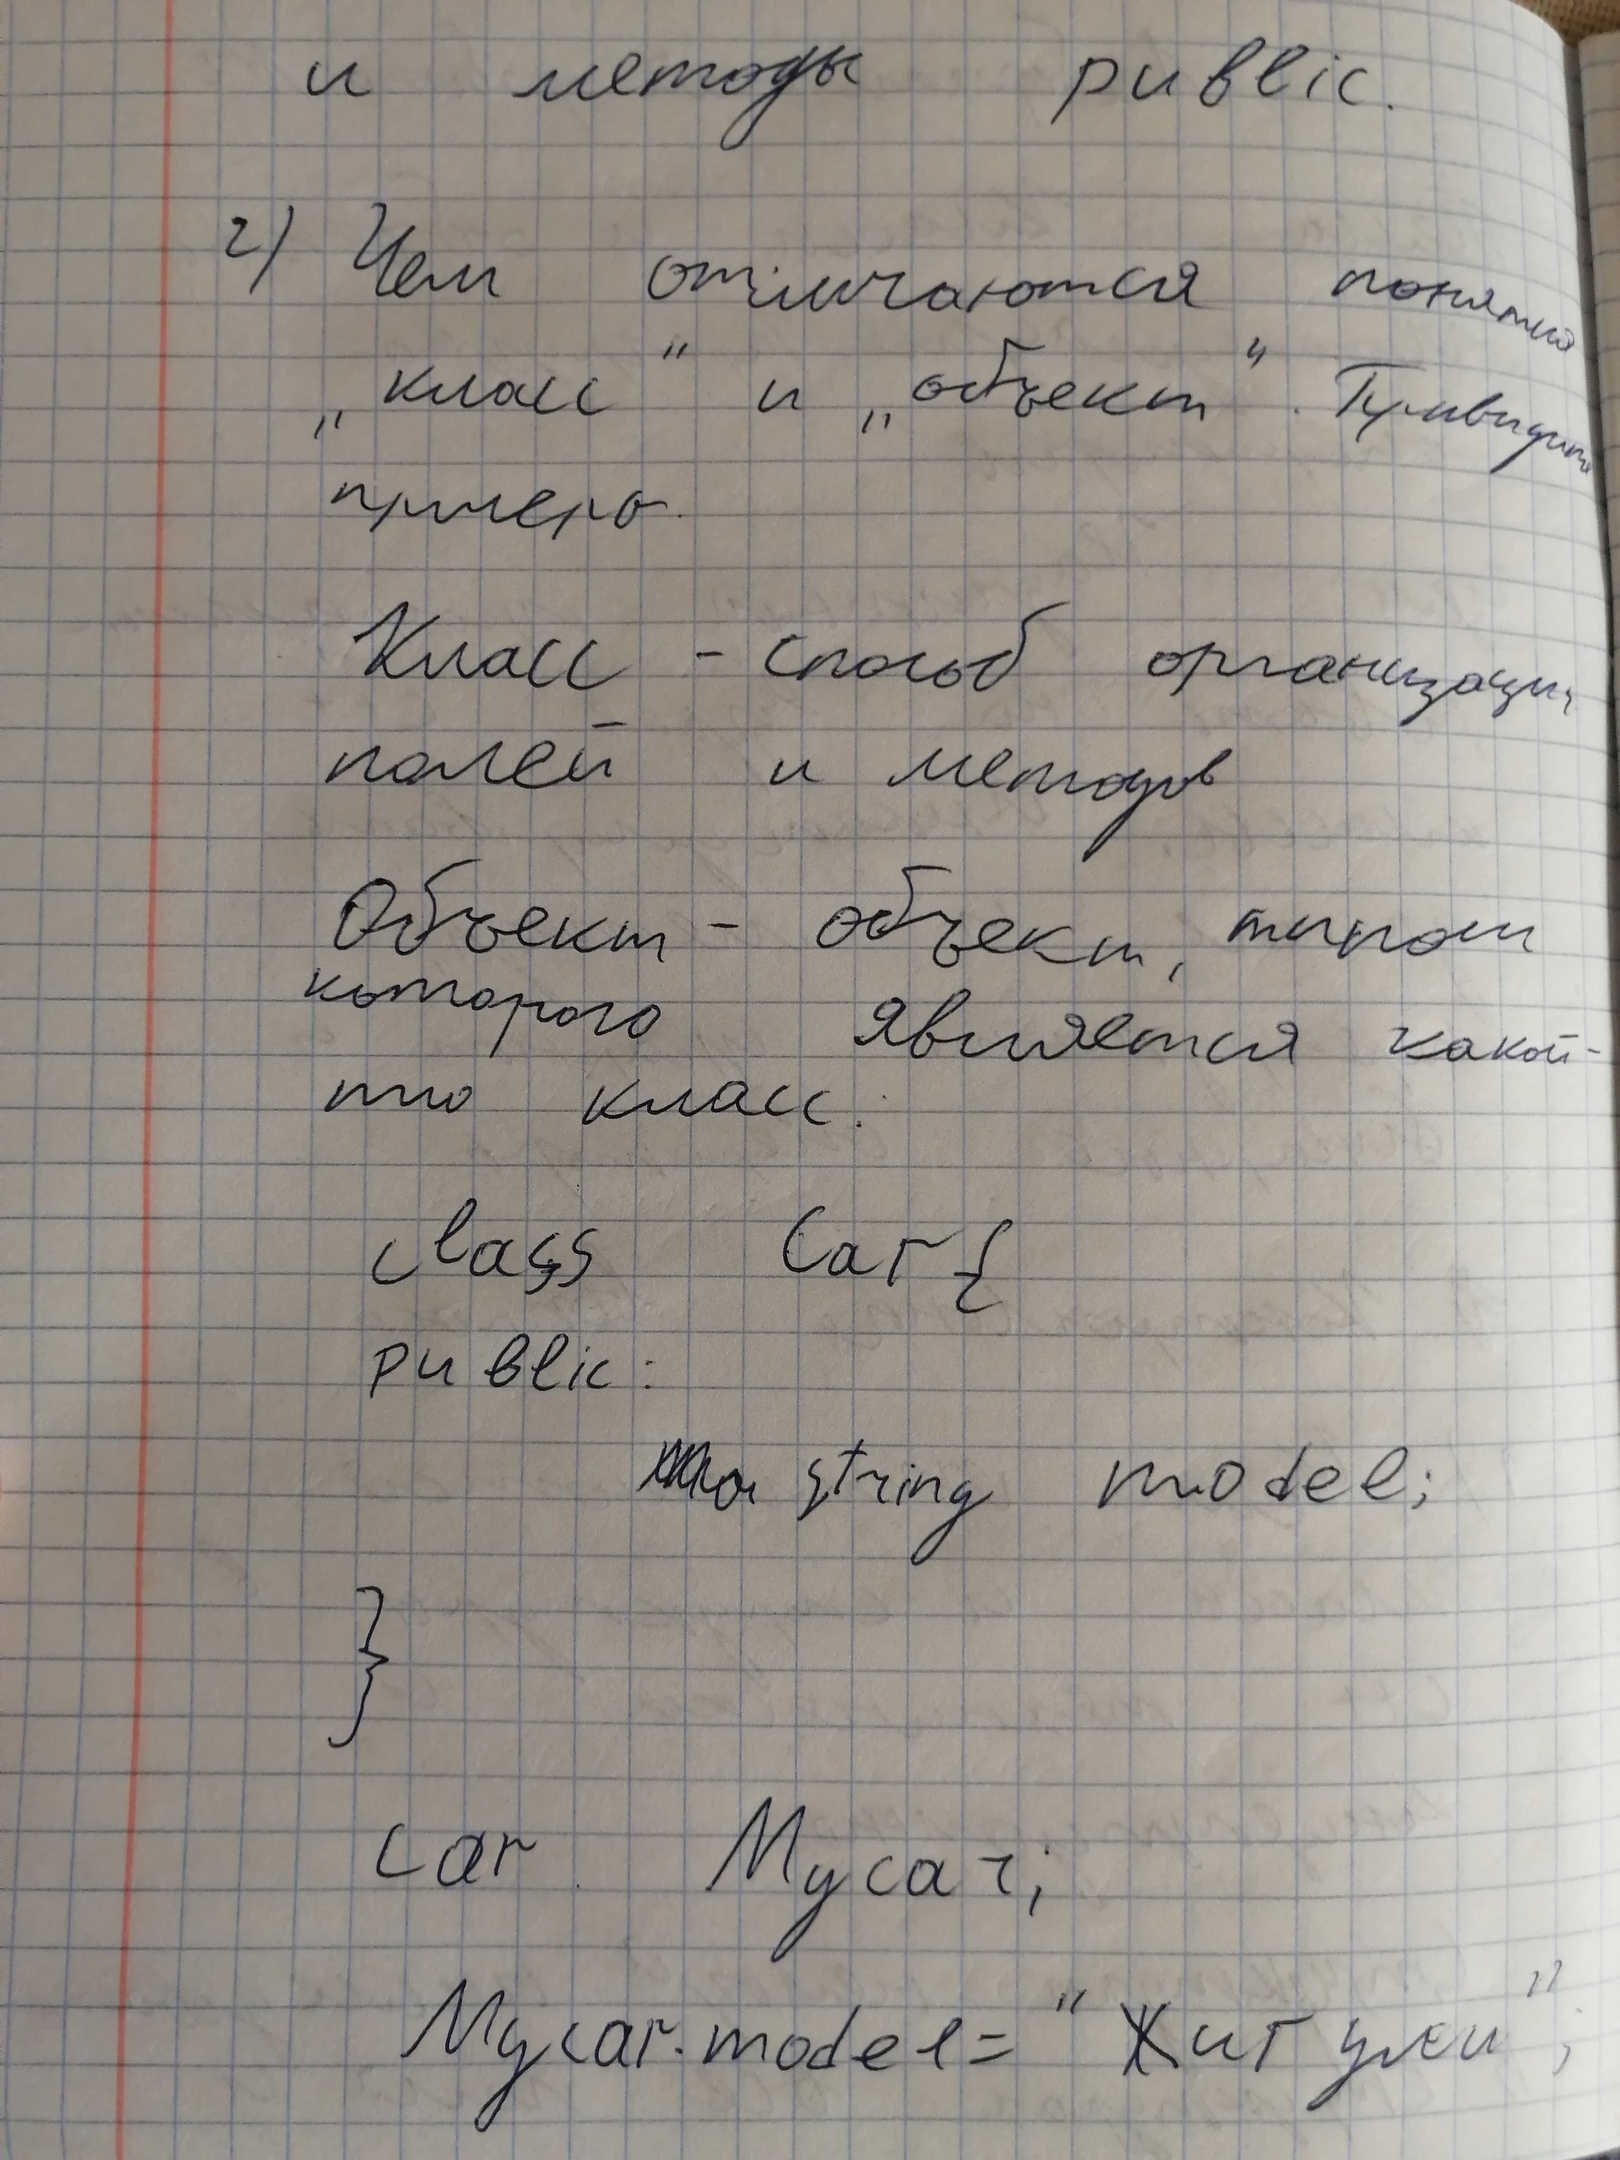 и методы public.
2) Чем отличаются понятия
„класс" и „объект". Привидите
примеры.
Класс - способ организации
полей и методов
Объект - объект, типом
которого является какой-
то класс.
class Car {
public:
string model;
}
Car Mycar;
Mycar.model= "Жигули";